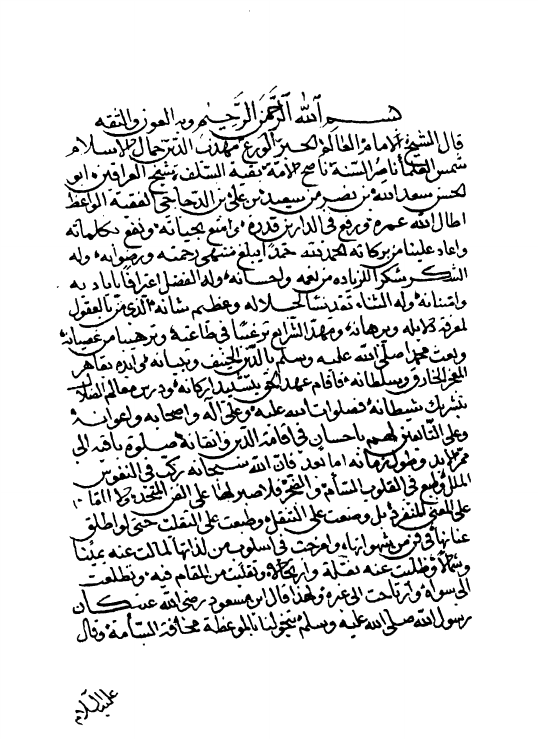 بسم الله الرحمن الرحيم وبه العون والثقة
قال الشيخ الامام العالم الحبر الورع مهذب الدين جمال الاسلام
شمس العلما ناصر السنة ناصح الامة بقية السلف شيخ العراقين ابو
الحسن سعد الله بن نصر بن سعيد بن علي بن الدجاجي الفقيه الواعظ
اطال الله عمره ورفع في الدارين قدره وامتع بحياته ونفع بكلماته
واعاد علينا من بركاته الحمد لله حمدا يبلغ منتهى رحمته ورضوانه وله
الشكر شكرا للزيادة من نعمه واحسانه وله الفضل اعترافا باياديه
وامتنانه وله الثناء تقديسا لجلاله وعظيم شانه الذي من بالعقول
لمعرفة دلايله وبرهانه ومهد الشرايع ترغيبا في طاعته وترهيبا من عصيانه
وبعث محمدا صلى الله عليه وسلم بالدين الحنيف وتبيانه وايده بقاهر
المعجز الخارق وسلطانه فاقام عمد الحق بتشييد اركانه ودرس معالم الضلال
بشرك شيطانه فصلوات الله عليه وعلى اله واصحابه واعوانه
وعلى التابعين لهم باحسان في اقامة الدين واتقانه صلوة باقية الى
الابد وطول زمانه اما بعد فان الله سبحانه ركب في النفوس
الملل وطبع في القلوب السأم والضجر فلا صبر لها على الفن المتحد ولا اقامة
على المعنى المنفرد بل وضعت على التنقل وطبعت على التقلب حتى لو اطلق
عنانها في شهواتها واخرجت في اسلوب من لذاتها لمالت عنه يمينا
وشمالا وطلبت عنه نقلة وارتحالا وتقلبت من المقام فيه وتطلعت
الى سواه وارتاحت الى غيره ولهذا قال ابن مسعود رضي الله عنه كان
رسول الله صلى الله عليه وسلم يتخولنا بالموعظة مخافة السآمة وقال
عليه السلام